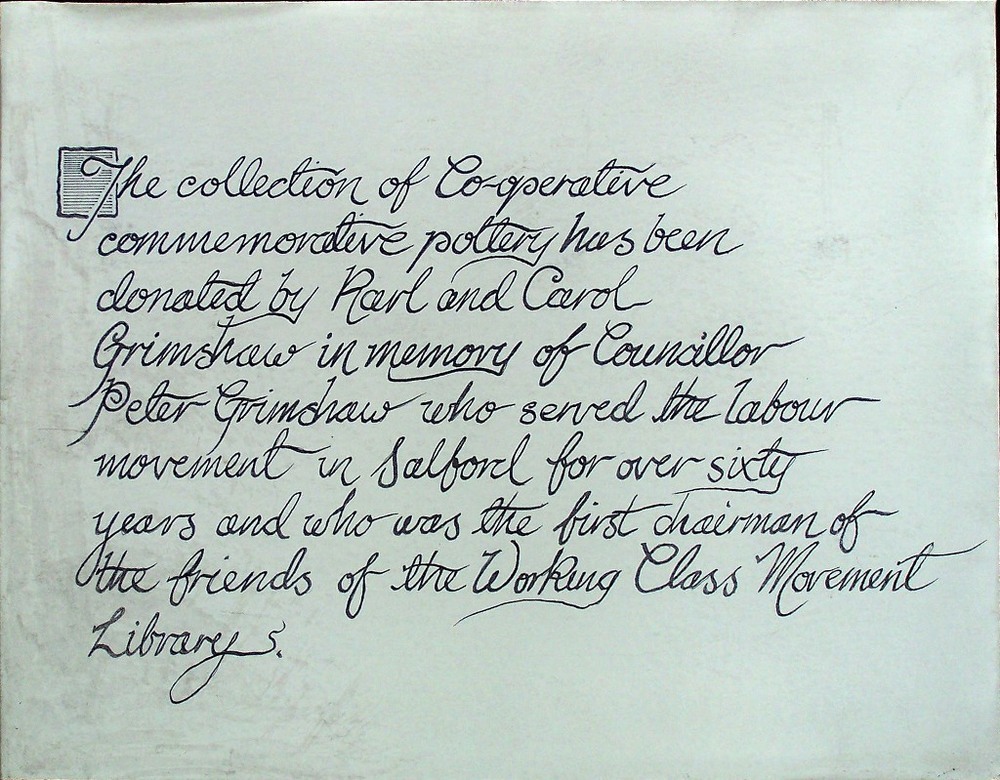 The collection of Co-operative
commemorative pottery has been
donated by Karl and Carol
Grimshaw in memory of Councillor
Peter Grimshaw who served the labour
movement in Salford for over sixty
years and who was the first chairman of
the friends of the Working Class Movement
Library.